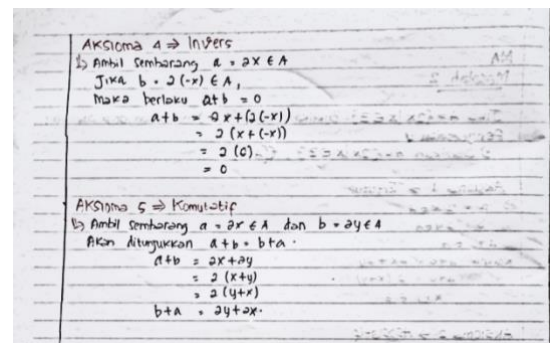 Aksioma 4 ⇒ Invers
↳ Ambil sembarang a = 2x ∈ A
Jika b = 2(-x) ∈ A,
maka berlaku a+b = 0
a+b = 2x+(2(-x))
= 2(x+(-x))
= 2(0)
= 0
Aksioma 5 ⇒ Komutatif
↳ Ambil sembarang a = 2x ∈ A dan b = 2y ∈ A
Akan ditunjukkan a+b = b+a.
a+b = 2x+2y
= 2(x+y)
= 2(y+x)
b+a = 2y+2x.